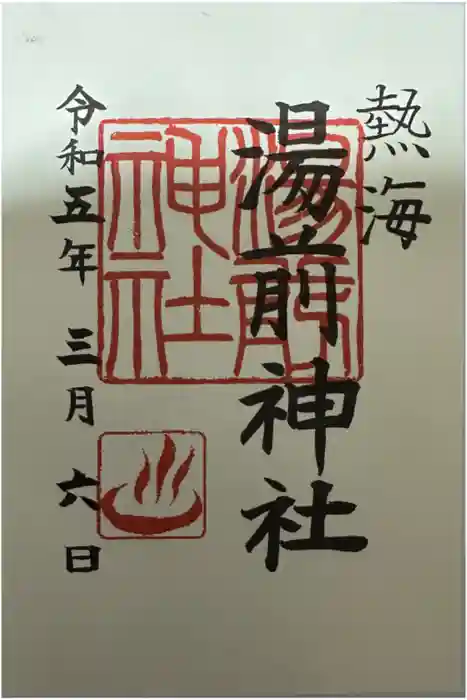 熱海
湯前神社
湯前神社
令和五年 三月 六日